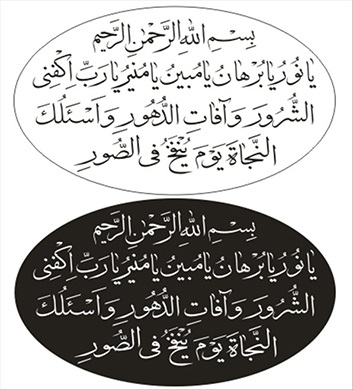 بِسْمِ اللهِ الرَّحْمٰنِ الرَّحيمِ
يٰا نُورُ يٰا بُرْهٰانُ يٰا مُبينُ يٰا مُنيرُ يٰا رَبِّ اكْفِنى
الشُّرُورَ وَ آفٰاتِ الدُّهُورِ وَ اَسْئَلُكَ
النَّجٰاةَ يَوْمَ يُنْفَخُ فِى الصُّورِ
بِسْمِ اللهِ الرَّحْمٰنِ الرَّحيمِ
يٰا نُورُ يٰا بُرْهٰانُ يٰا مُبينُ يٰا مُنيرُ يٰا رَبِّ اكْفِنى
الشُّرُورَ وَ آفٰاتِ الدُّهُورِ وَ اَسْئَلُكَ
النَّجٰاةَ يَوْمَ يُنْفَخُ فِى الصُّورِ